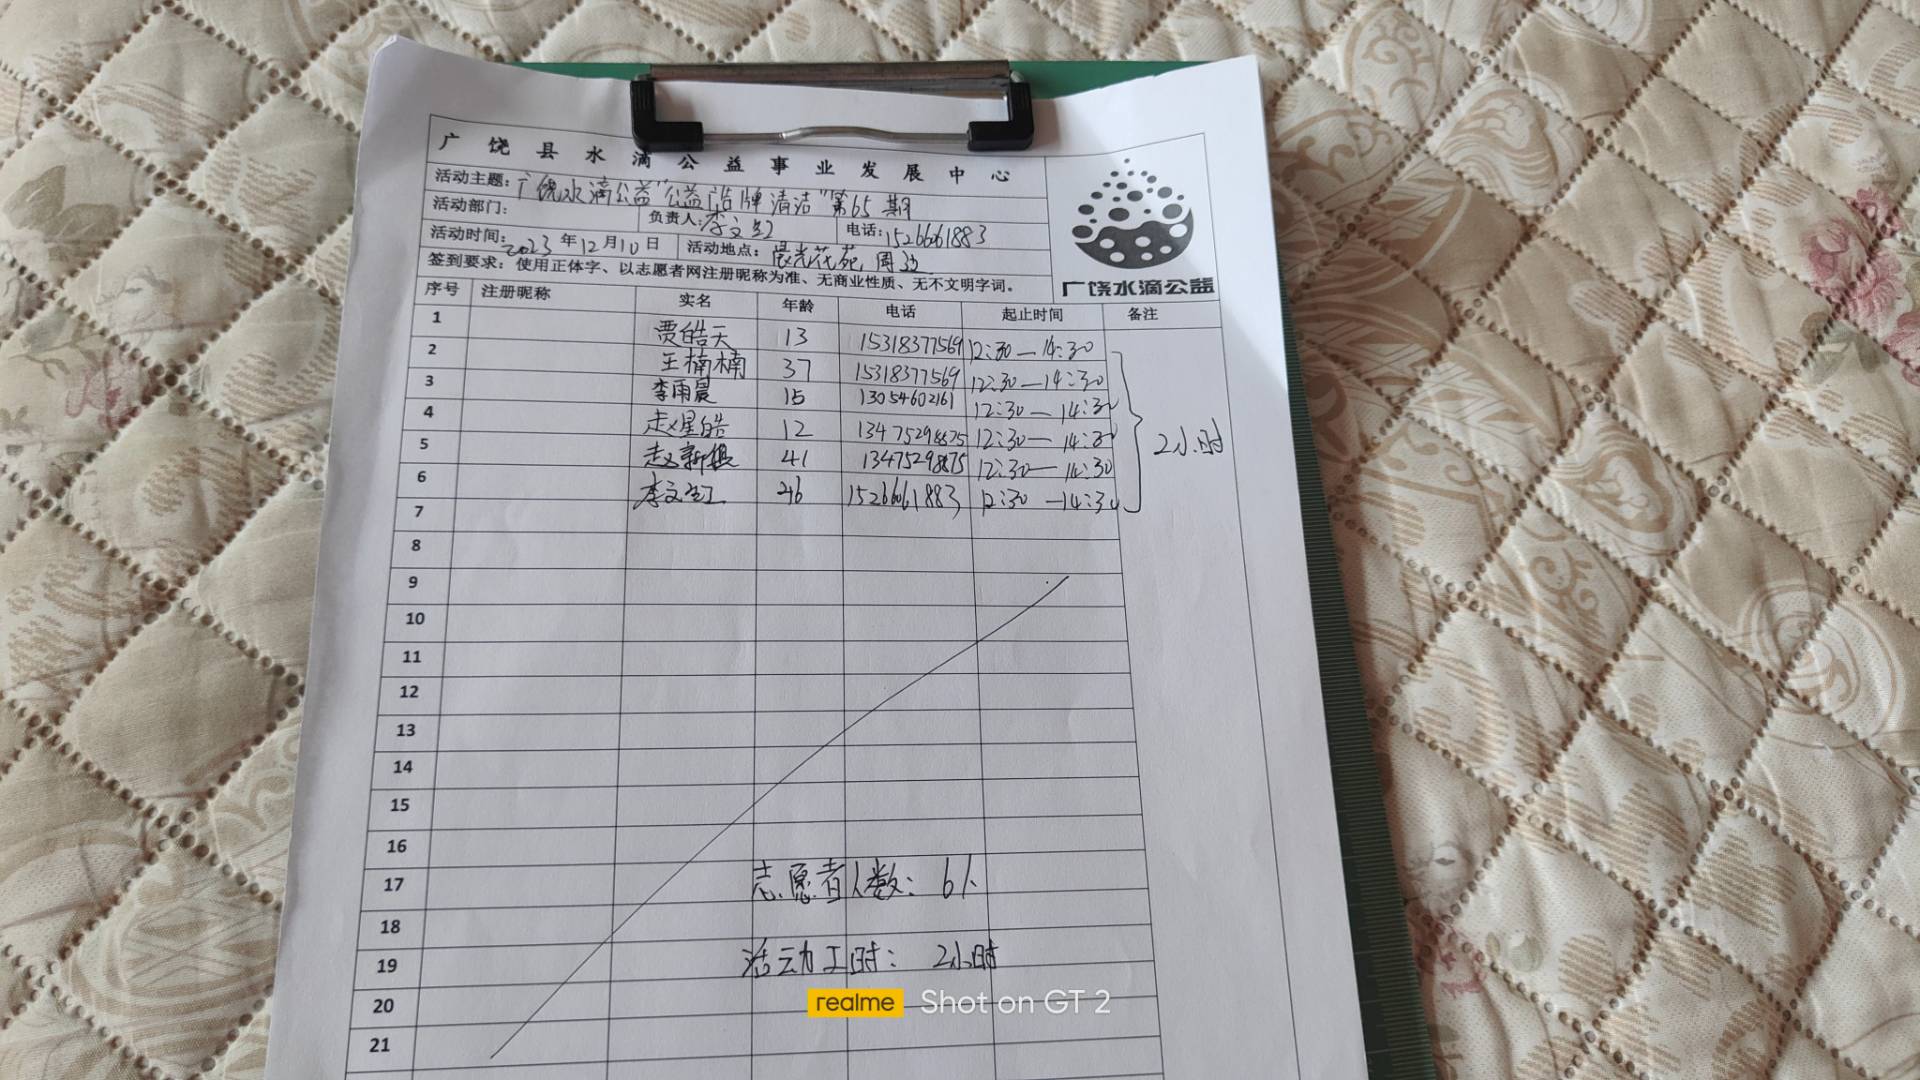 广饶县水滴公益事业发展中心
活动主题:广饶水滴公益"公益广告牌清洁"第65期
活动部门: 负责人:李文红 电话:15266061883
活动时间:2023年12月10日 活动地点:晨光花苑周边
签到要求:使用正体字、以志愿者网注册昵称为准、无商业性质、无不文明字词。
广饶水滴公益
序号 注册昵称 实名 年龄 电话 起止时间 备注
1 贾皓天 13 15318377569 12:30—14:30
2 王楠楠 37 15318377569 12:30—14:30
3 李雨晨 15 13054602161 12:30—14:30
4 赵星皓 12 13475298875 12:30—14:30
5 赵新 41 13475298875 12:30—14:30
6 李文红 46 15266061883 12:30—14:30
2小时
7
8
9
10
11
12
13
14
15
16
17 志愿者人数:6人
18
19 活动工时:2小时
20
21
realme Shot on GT 2